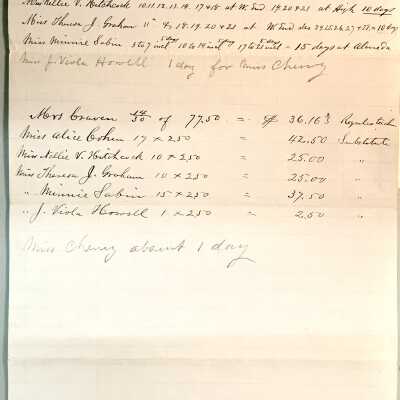 Miss Nellie V. Hitchcock 10.11.12.13.14. 17+18 at W. End 19.20+21 at High 10 days
Miss Theresa J. Graham " 4, 18.19.20+21 at W. End 24.25.26.27+28 = 10 days
Miss Minnie Sabin 3 to 7 incl 5 days 10 to 14 incl 5 days 17 to 21 incl 5 days - 15 days at Almeda
Miss J. Viola Howell 1 day for Miss Cheney
Mrs Craven 14/30 of 77.50 = $ 36.16⅔ Regular teach
Miss Alice Cohen 17 x 250 = 42.50 Substitute
Miss Nellie V. Hitchcock 10 x 250 = 25.00 "
Miss Theresa J. Graham 10 x 250 = 25.00 "
" Minnie Sabin 15 x 250 = 37.50 "
" J. Viola Howell 1 x 250 = 2.50 "
Miss Cheney absent 1 day